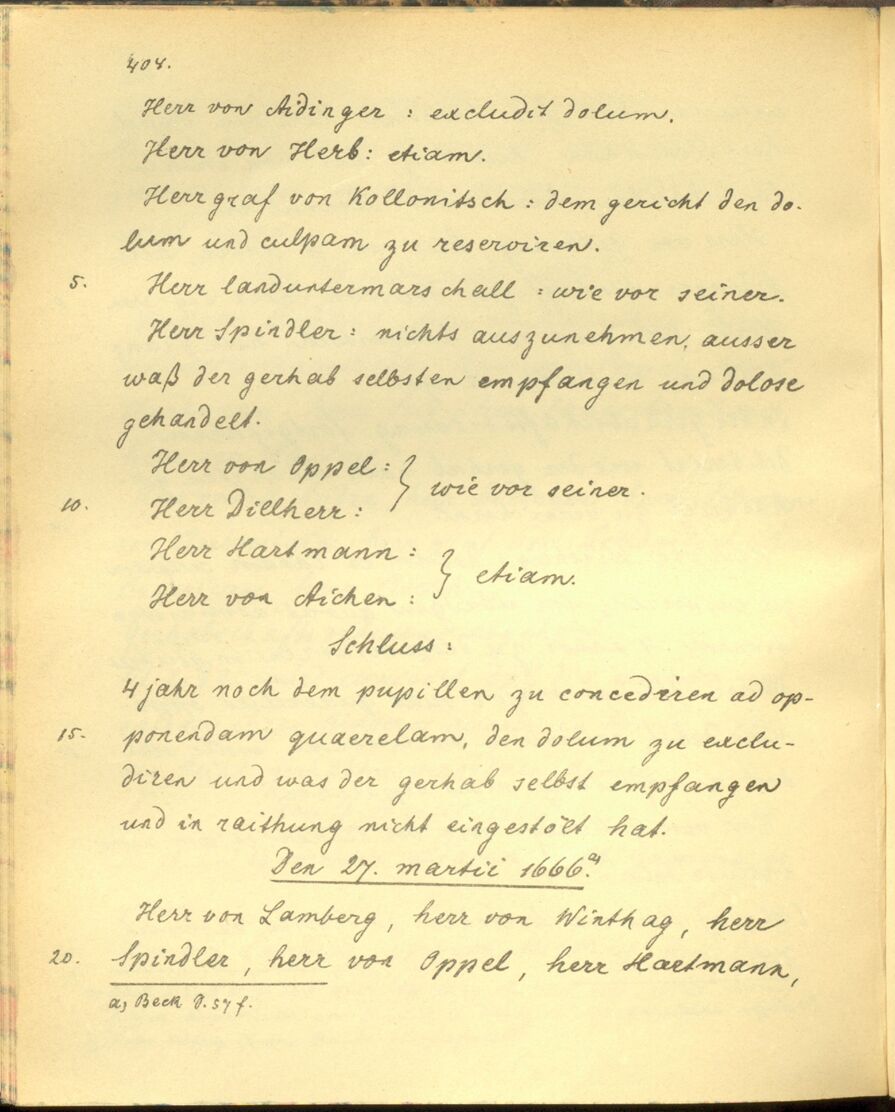 404.
Herr von Aidinger : excludit dolum.
Herr von Herb: etiam.
Herr graf von Kollonitsch : dem gericht den do-
lum und culpam zu reserviren.
5. Herr landuntermarschall : wie vor seiner.
Herr Spindler : nichts auszunehmen, ausser
waß der gerhab selbsten empfangen und dolose
gehandelt.
Herr von Oppel : } wie vor seiner.
10. Herr Dillherr :
Herr Hartmann : } etiam.
Herr von Aichen :
Schluss :
4 jahr noch dem pupillen zu concediren ad op-
15. ponendam quaerelam, den dolum zu exclu-
diren und was der gerhab selbst empfangen
und in raithung nicht eingestölt hat.
Den 27. martii 1666. a)
Herr von Lamberg, herr von Winthag, herr
20. Spindler, herr von Oppel, herr Hartmann,
a) Beck S. 57 f.